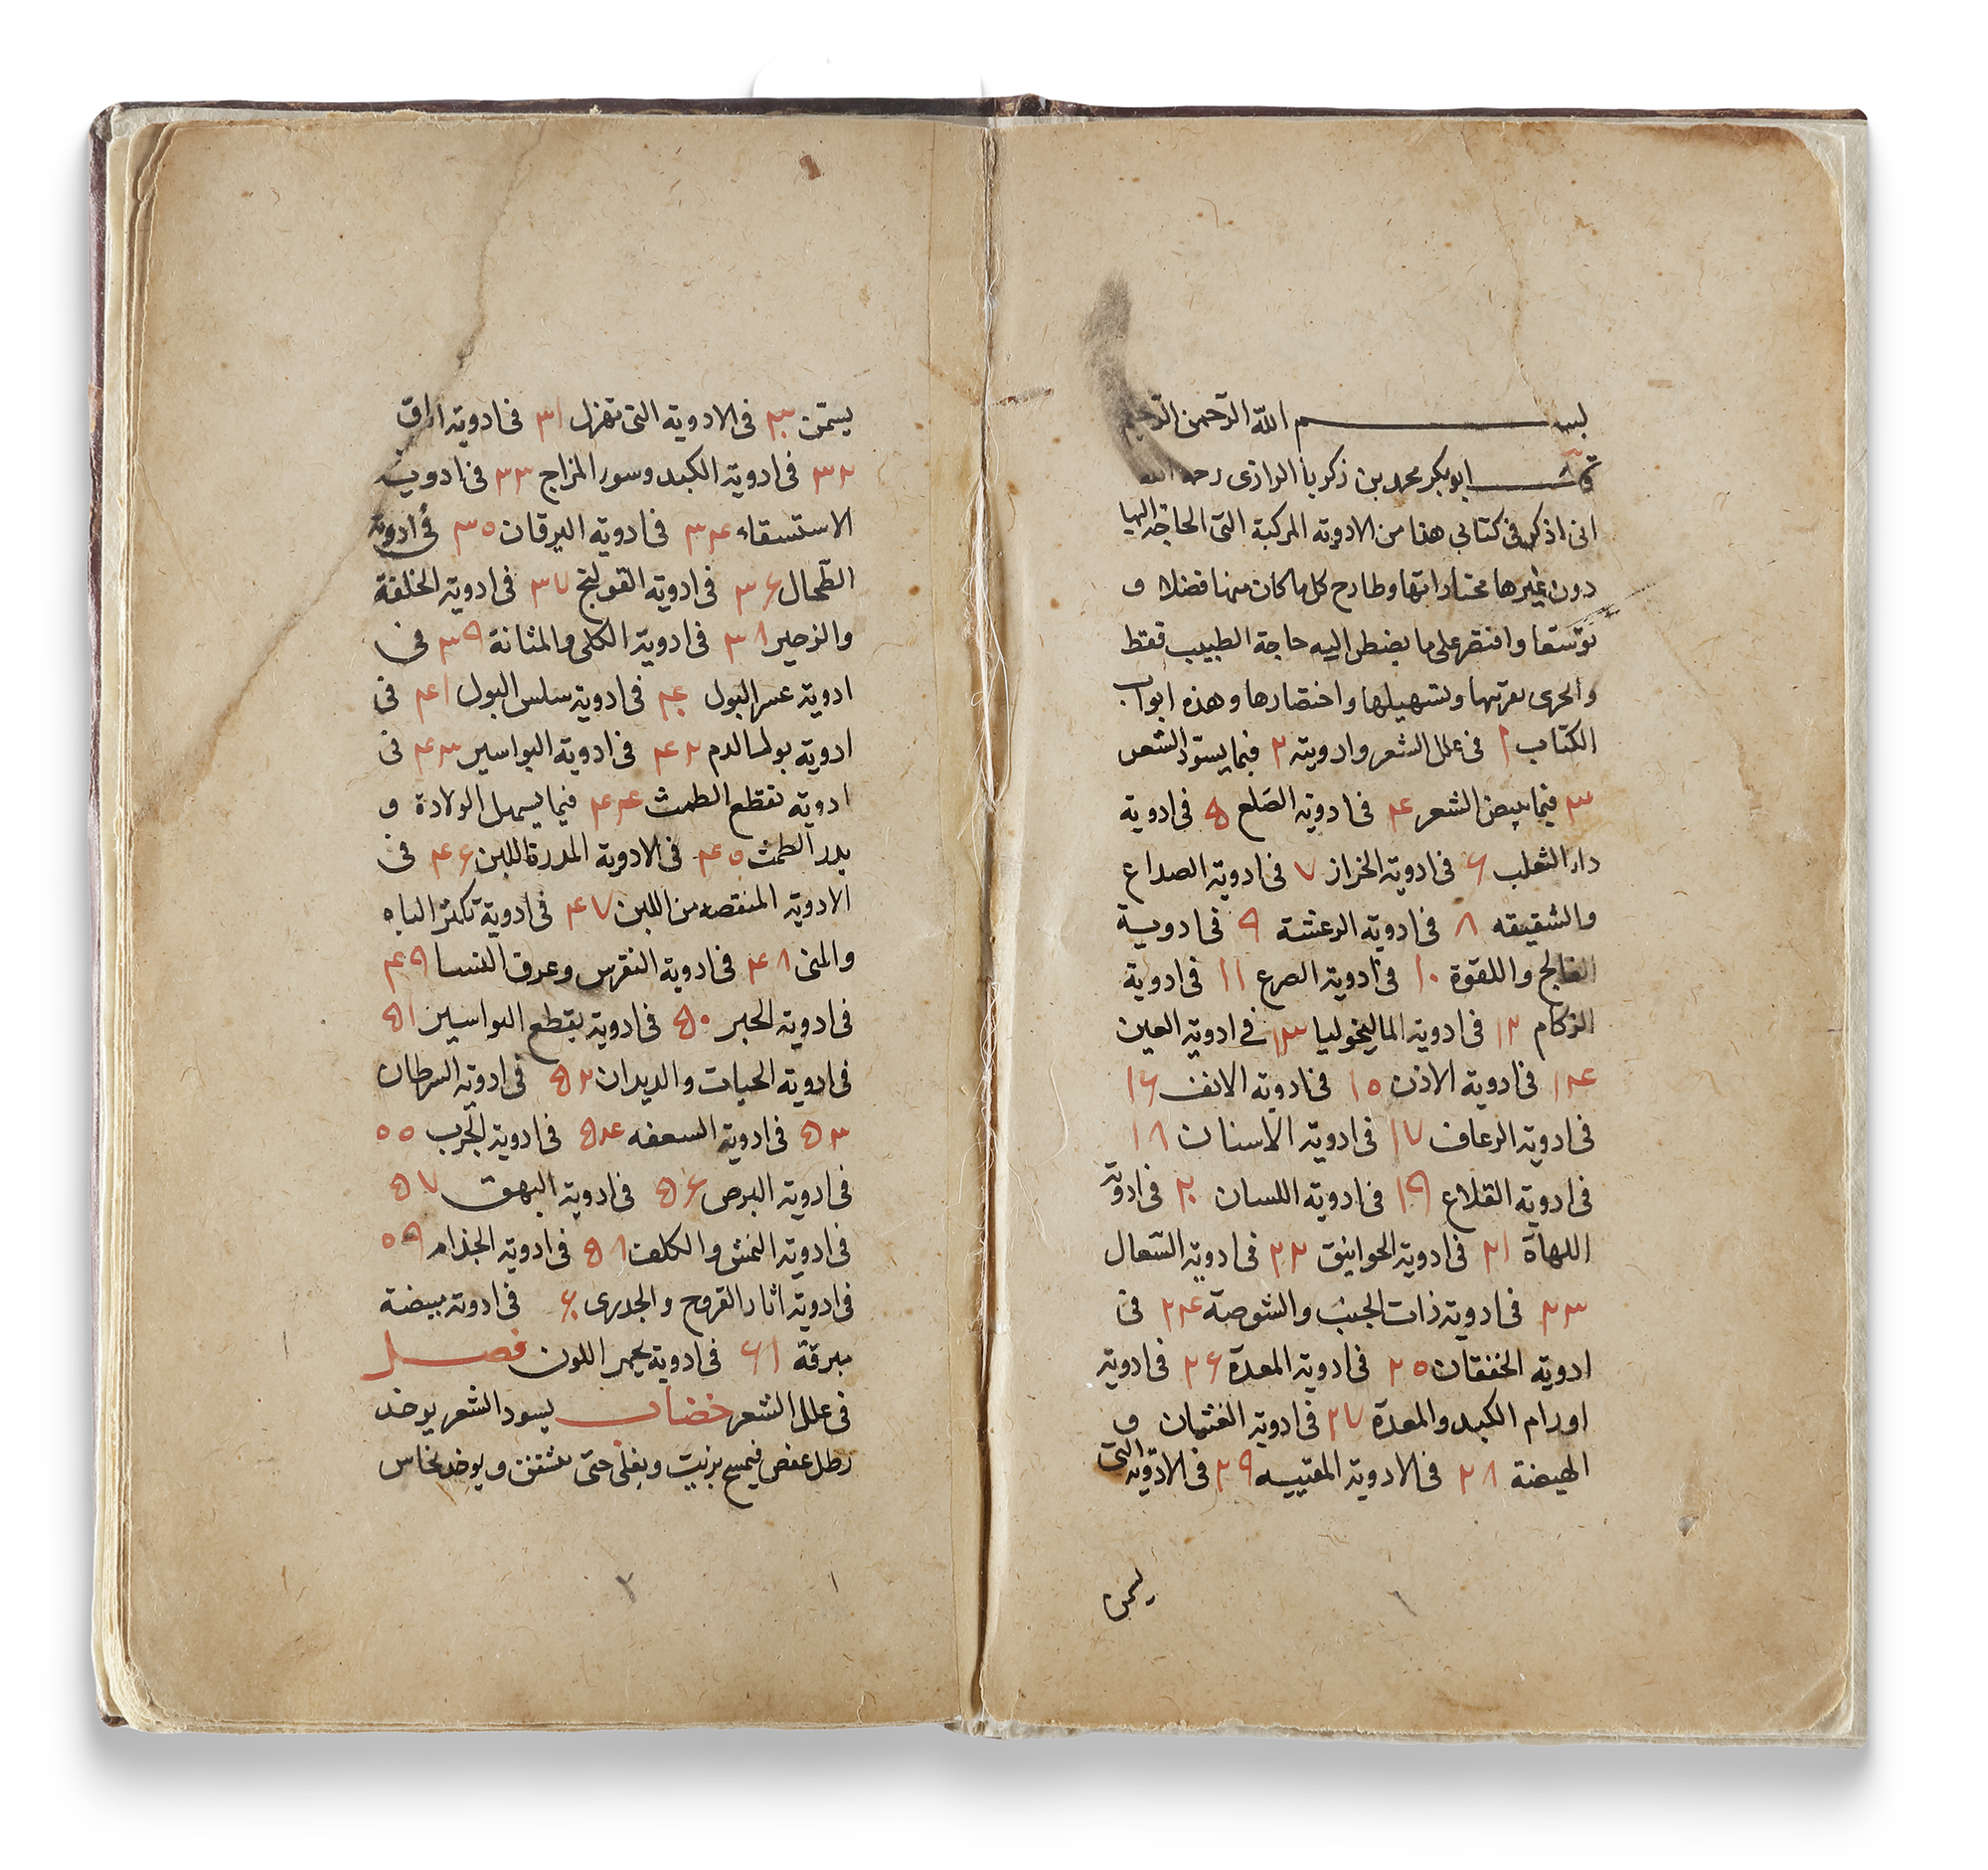 بسم الله الرحمن الرحيم
قال ابو بكر محمد بن زكريا الرازى رحمه الله
انى اذكر فى كتابى هذا من الادوية المركبة التى الحاجة اليها
دون غيرها مختاراتها وطارح كل ما كان منها فضلا و
توسعا واقتصر على ما يضطر اليه حاجة الطبيب فقط
والحرى بقربها وتسهيلها واختصارها وهذه ابواب
الكتاب ١ فى علل الشعر وادويته ٢ فيما يسوّد الشعر
٣ فيما يبيض الشعر ۴ فى ادوية الصلع ۵ فى ادوية
داء الثعلب ۶ فى ادوية الحزاز ٧ فى ادوية الصداع
والشقيقه ٨ فى ادوية الرعشة ٩ فى ادوية
الفالج واللقوة ١٠ فى ادوية الصرع ١١ فى ادوية
الزكام ١٢ فى ادوية الماليخوليا ١٣ فى ادوية العين
١۴ فى ادوية الاذن ١٥ فى ادوية الانف ١۶
فى ادوية الرعاف ١٧ فى ادوية الاسنان ١٨
فى ادوية القلاع ١٩ فى ادوية اللسان ٢٠ فى ادوية
اللهاة ٢١ فى ادوية الخوانيق ٢٢ فى ادوية السعال
٢٣ فى ادوية ذات الجنب والشوصة ٢۴ فى
ادوية الخفقان ٢٥ فى ادوية المعدة ٢۶ فى ادوية
اورام الكبد والمعدة ٢٧ فى ادوية الغثيان و
الهيضة ٢٨ فى الادوية المقييه ٢٩ فى الادوية التى
يسمن
يسمّن ٣٠ فى الادوية التى تهزل ٣١ فى ادوية
٣٢ فى ادوية الكبد وسوء المزاج ٣٣ فى ادوية
الاستسقاء ٣۴ فى ادوية اليرقان ٣٥ فى ادوية
الطحال ٣۶ فى ادوية القولنج ٣٧ فى ادوية الخلفة
والزحير ٣٨ فى ادوية الكلى والمثانة ٣٩ فى
ادوية عسر البول ۴٠ فى ادوية سلس البول ۴١ فى
ادوية بول الدم ۴٢ فى ادوية البواسير ۴٣ فى
ادوية تقطع الطمث ۴۴ فيما يسهل الولادة و
يدر الطمث ۴٥ فى الادوية المدرة اللبن ۴۶ فى
الادوية المنقصه من اللبن ۴٧ فى ادوية تكثر الباه
والمنى ۴٨ فى ادوية النقرس وعرق النسا ۴٩
فى ادوية ۵٠ فى ادوية يقطع البواسير ۵١
فى ادوية الحيات والديدان ۵٢ فى ادوية السرطان
۵٣ فى ادوية السعفه ۵۴ فى ادوية الجرب ٥٥
فى ادوية البرص ۵۶ فى ادوية البهق ۵٧
فى ادوية النمش والكلف ۵٨ فى ادوية الجذام ٥٩
فى ادوية اثار القروح والجدرى ۶٠ فى ادوية مبيضة
مبرقة ۶١ فى ادوية يحمر اللون فصل
فى علل الشعر خضاب يسود الشعر يوخذ
رطل عفص فيمسح بزيت ويغلى حتى يتشقق ويوخذ نحاس
١
٢